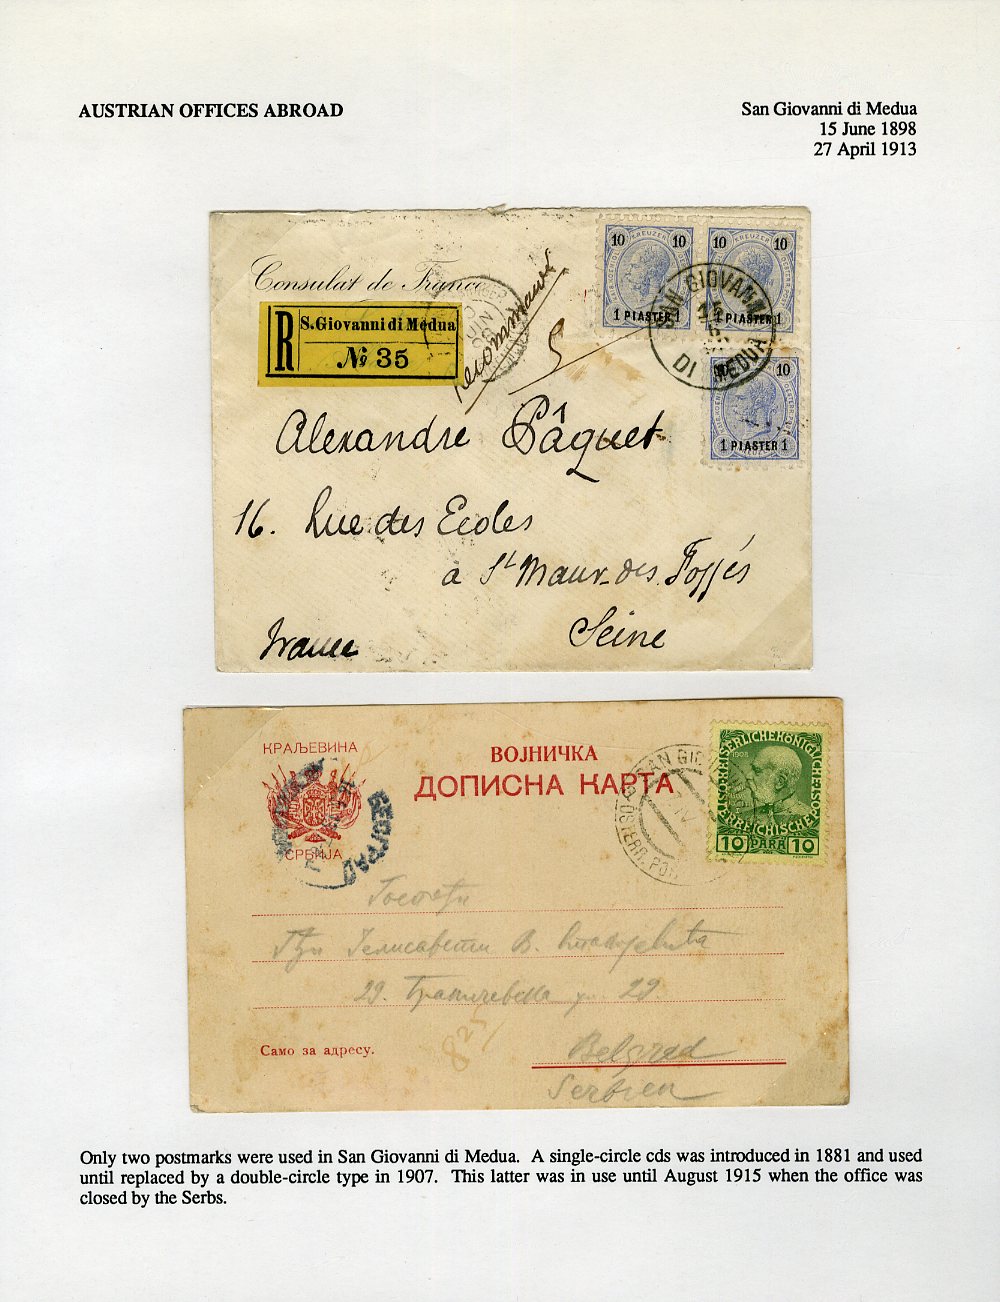 AUSTRIAN OFFICES ABROAD
San Giovanni di Medua
15 June 1898
27 April 1913
Consulat de France
R
S. Giovanni di Medua
№ 35
recommandé
10 KREUZER 10
1 PIASTER 1
10 KREUZER 10
1 PIASTER 1
SAN GIOVANNI
DI MEDUA
10 10
1 PIASTER 1
Alexandre Pâquet
16. Rue des Ecoles
à St Maur-des-Fossés
Seine
France
КРАЉЕВИНА
СРБИЈА
ВОЈНИЧКА
ДОПИСНА КАРТА
БЕОГРАД
SAN GIO
ÖSTERR. POST
1908
10 PARA 10
29.
29.
Само за адресу.
825
Belgrad
Serbien
Only two postmarks were used in San Giovanni di Medua. A single-circle cds was introduced in 1881 and used
until replaced by a double-circle type in 1907. This latter was in use until August 1915 when the office was
closed by the Serbs.